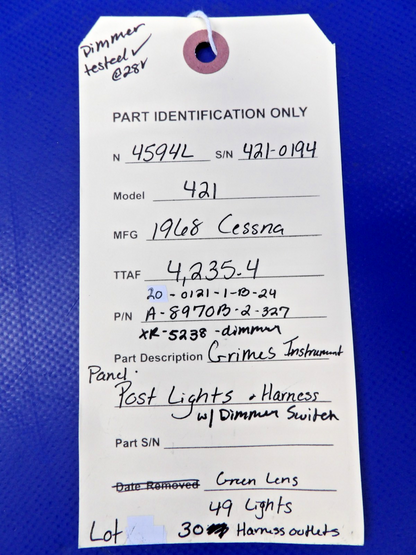 Dimmer
tested ✓
@28v
PART IDENTIFICATION ONLY
N 4594L S/N 421-0194
Model 421
MFG 1968 Cessna
TTAF 4,235.4
20-0121-1-B-24
P/N A-8970B-2-327
XR-5238-dimmer
Part Description Grimes Instrument
Panel.
Post Lights & Harness
w/ Dimmer Switch
Part S/N
Date Removed Green Lens
49 Lights
Lot 30 Harness outlets